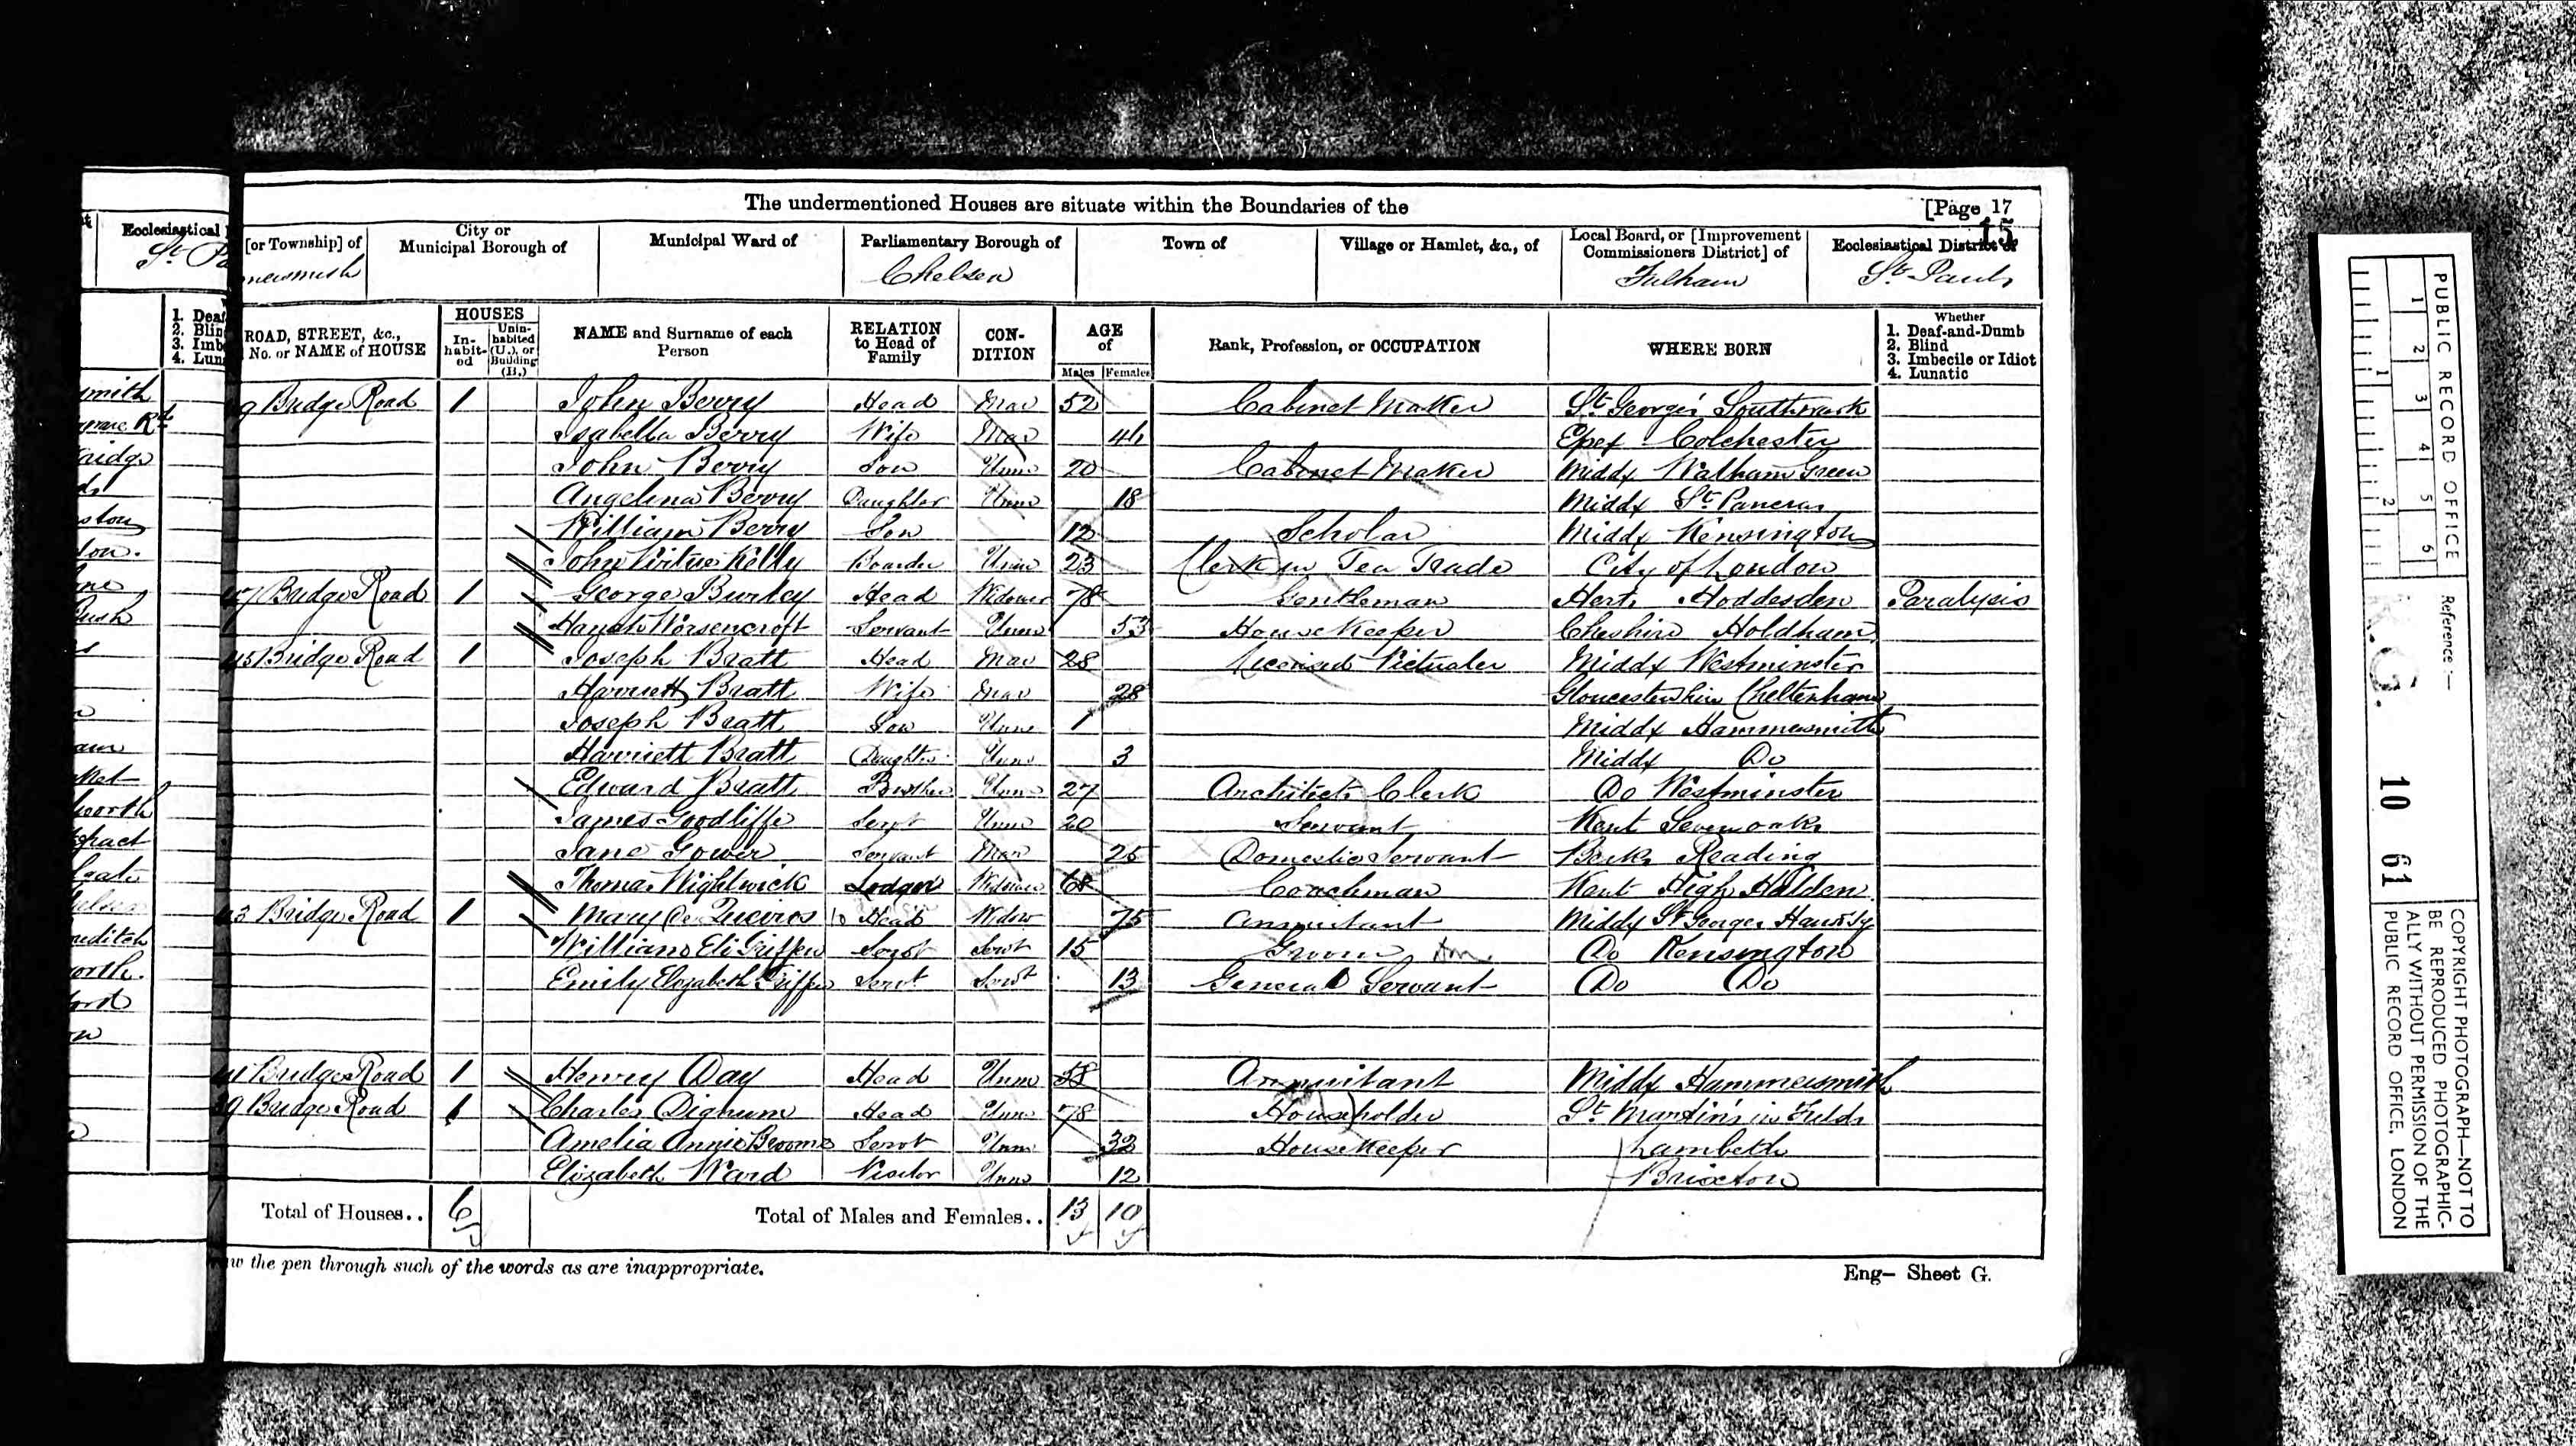 The undermentioned Houses are situate within the Boundaries of the [Page 17
15
Ecclesiastical
[or Township] of City or Municipal Borough of Municipal Ward of Parliamentary Borough of Town of Village or Hamlet, &c., of Local Board, or [Improvement Commissioners District] of Ecclesiastical District of
Chelsea Fulham St. Pauls
1. Deaf
2. Blin
3. Imb
4. Lun
ROAD, STREET, &c., No. or NAME of HOUSE HOUSES In-habit-ed Unin-habited (U.), or Building (B.) NAME and Surname of each Person RELATION to Head of Family CON-DITION AGE of Males Females Rank, Profession, or OCCUPATION WHERE BORN Whether 1. Deaf-and-Dumb 2. Blind 3. Imbecile or Idiot 4. Lunatic
9 Bridge Road 1 John Berry Head Mar 52 Cabinet Maker St. George's Southwark
Isabella Berry Wife Mar Essex Colchester
John Berry Son Unm 20 Cabinet Maker Middx Walham Green
Angelina Berry Daughter Unm 18 Middx St. Pancras
William Berry Son 12 Scholar Middx Kensington
John Virtue Kelly Boarder Unm 23 Clerk in Tea Trade City of London
47 Bridge Road 1 George Burley Head Widower 78 Gentleman Herts Hoddesden Paralysis
Hannah Worsencroft Servant Unm 53 House Keeper Cheshire Holdham
45 Bridge Road 1 Joseph Bratt Head Mar 28 Licensed Victualer Middx Westminster
Harriett Bratt Wife Mar 28 Gloucestershire Cheltenham
Joseph Bratt Son Unm 1 Middx Hammersmith
Harriett Bratt Daughter Unm 3 Middx Do
Edward Bratt Brother Unm 27 Architects Clerk Do Westminster
James Goodliffe Servt Unm 20 Servant Kent Sevenoaks
Jane Gower Servant Mar 25 Domestic Servant Berks Reading
Thomas Wightwick Lodger Widower 68 Coachman Kent High Halden
43 Bridge Road 1 Mary de Queiros Head Widow 75 Annuitant Middx St Georges Han Sq
William Eli Griffen Servt Servt 15 Groom Do Kensington
Emily Elizabeth Griffen Servt Servt 13 General Servant Do Do
41 Bridge Road 1 Henry Day Head Unm 58 Annuitant Middx Hammersmith
39 Bridge Road 1 Charles Dignum Head Unm 78 Householder St. Martin's in Fields
Amelia Annie Broome Servt Unm 32 Housekeeper Lambeth
Elizabeth Ward Visitor Unm 12 Brixton
Total of Houses.. 6 Total of Males and Females.. 13 10
the pen through such of the words as are inappropriate.
Eng— Sheet G.
PUBLIC RECORD OFFICE
1 2 3 4 5 6
1 2
Reference:—
R.G. 10 61
COPYRIGHT PHOTOGRAPH—NOT TO
BE REPRODUCED PHOTOGRAPHIC-
ALLY WITHOUT PERMISSION OF THE
PUBLIC RECORD OFFICE, LONDON